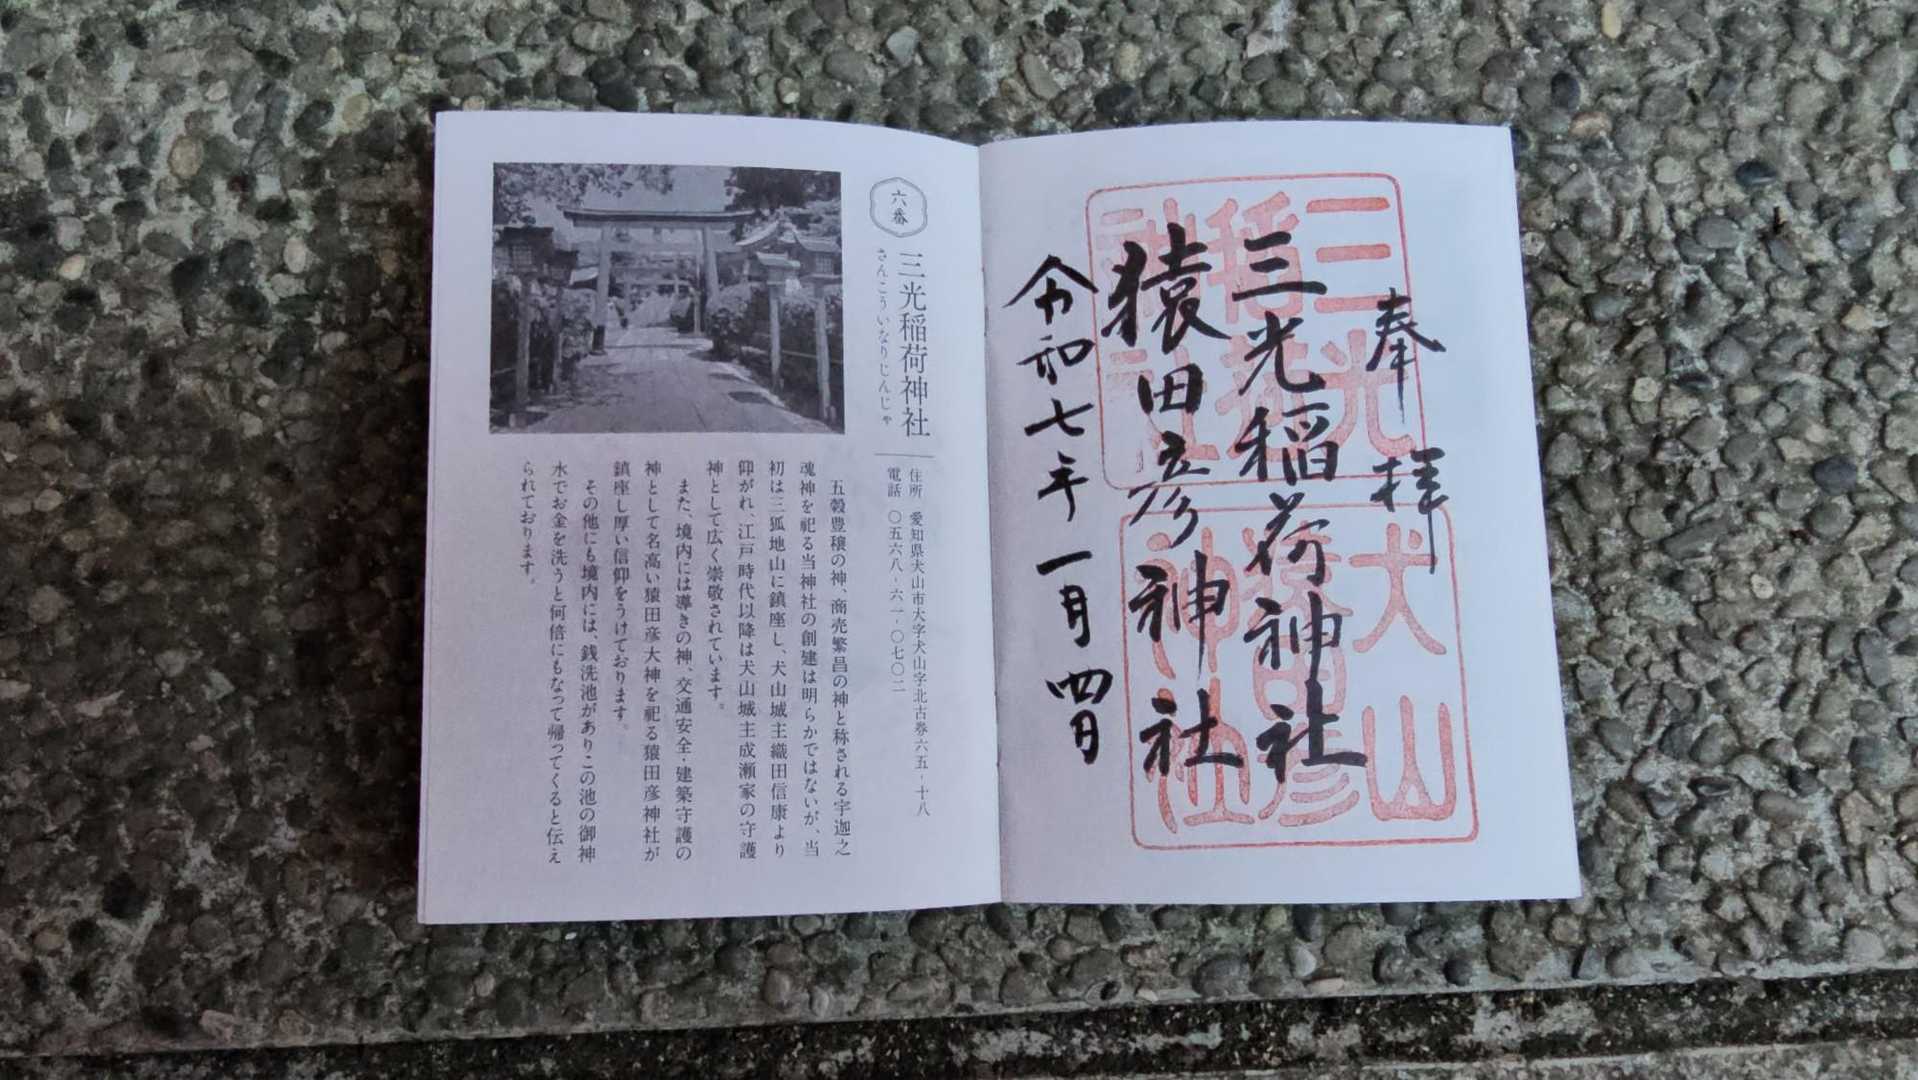 奉拝
三光稲荷神社
猿田彦神社
令和七年一月四日
三光
稲荷
神社
犬山
猿田彦
神社
六番
三光稲荷神社
さんこういなりじんじゃ
住所 愛知県犬山市大字犬山字北古券六五-十八
電話 〇五六八-六一-〇七〇二
五穀豊穣の神、商売繁昌の神と称される宇迦之
魂神を祀る当神社の創建は明らかではないが、当
初は三狐地山に鎮座し、犬山城主織田信康より
仰がれ、江戸時代以降は犬山城主成瀬家の守護
神として広く崇敬されています。
また、境内には導きの神、交通安全・建築守護の
神として名高い猿田彦大神を祀る猿田彦神社が
鎮座し厚い信仰をうけております。
その他にも境内には、銭洗池がありこの池の御神
水でお金を洗うと何倍にもなって帰ってくると伝え
られております。